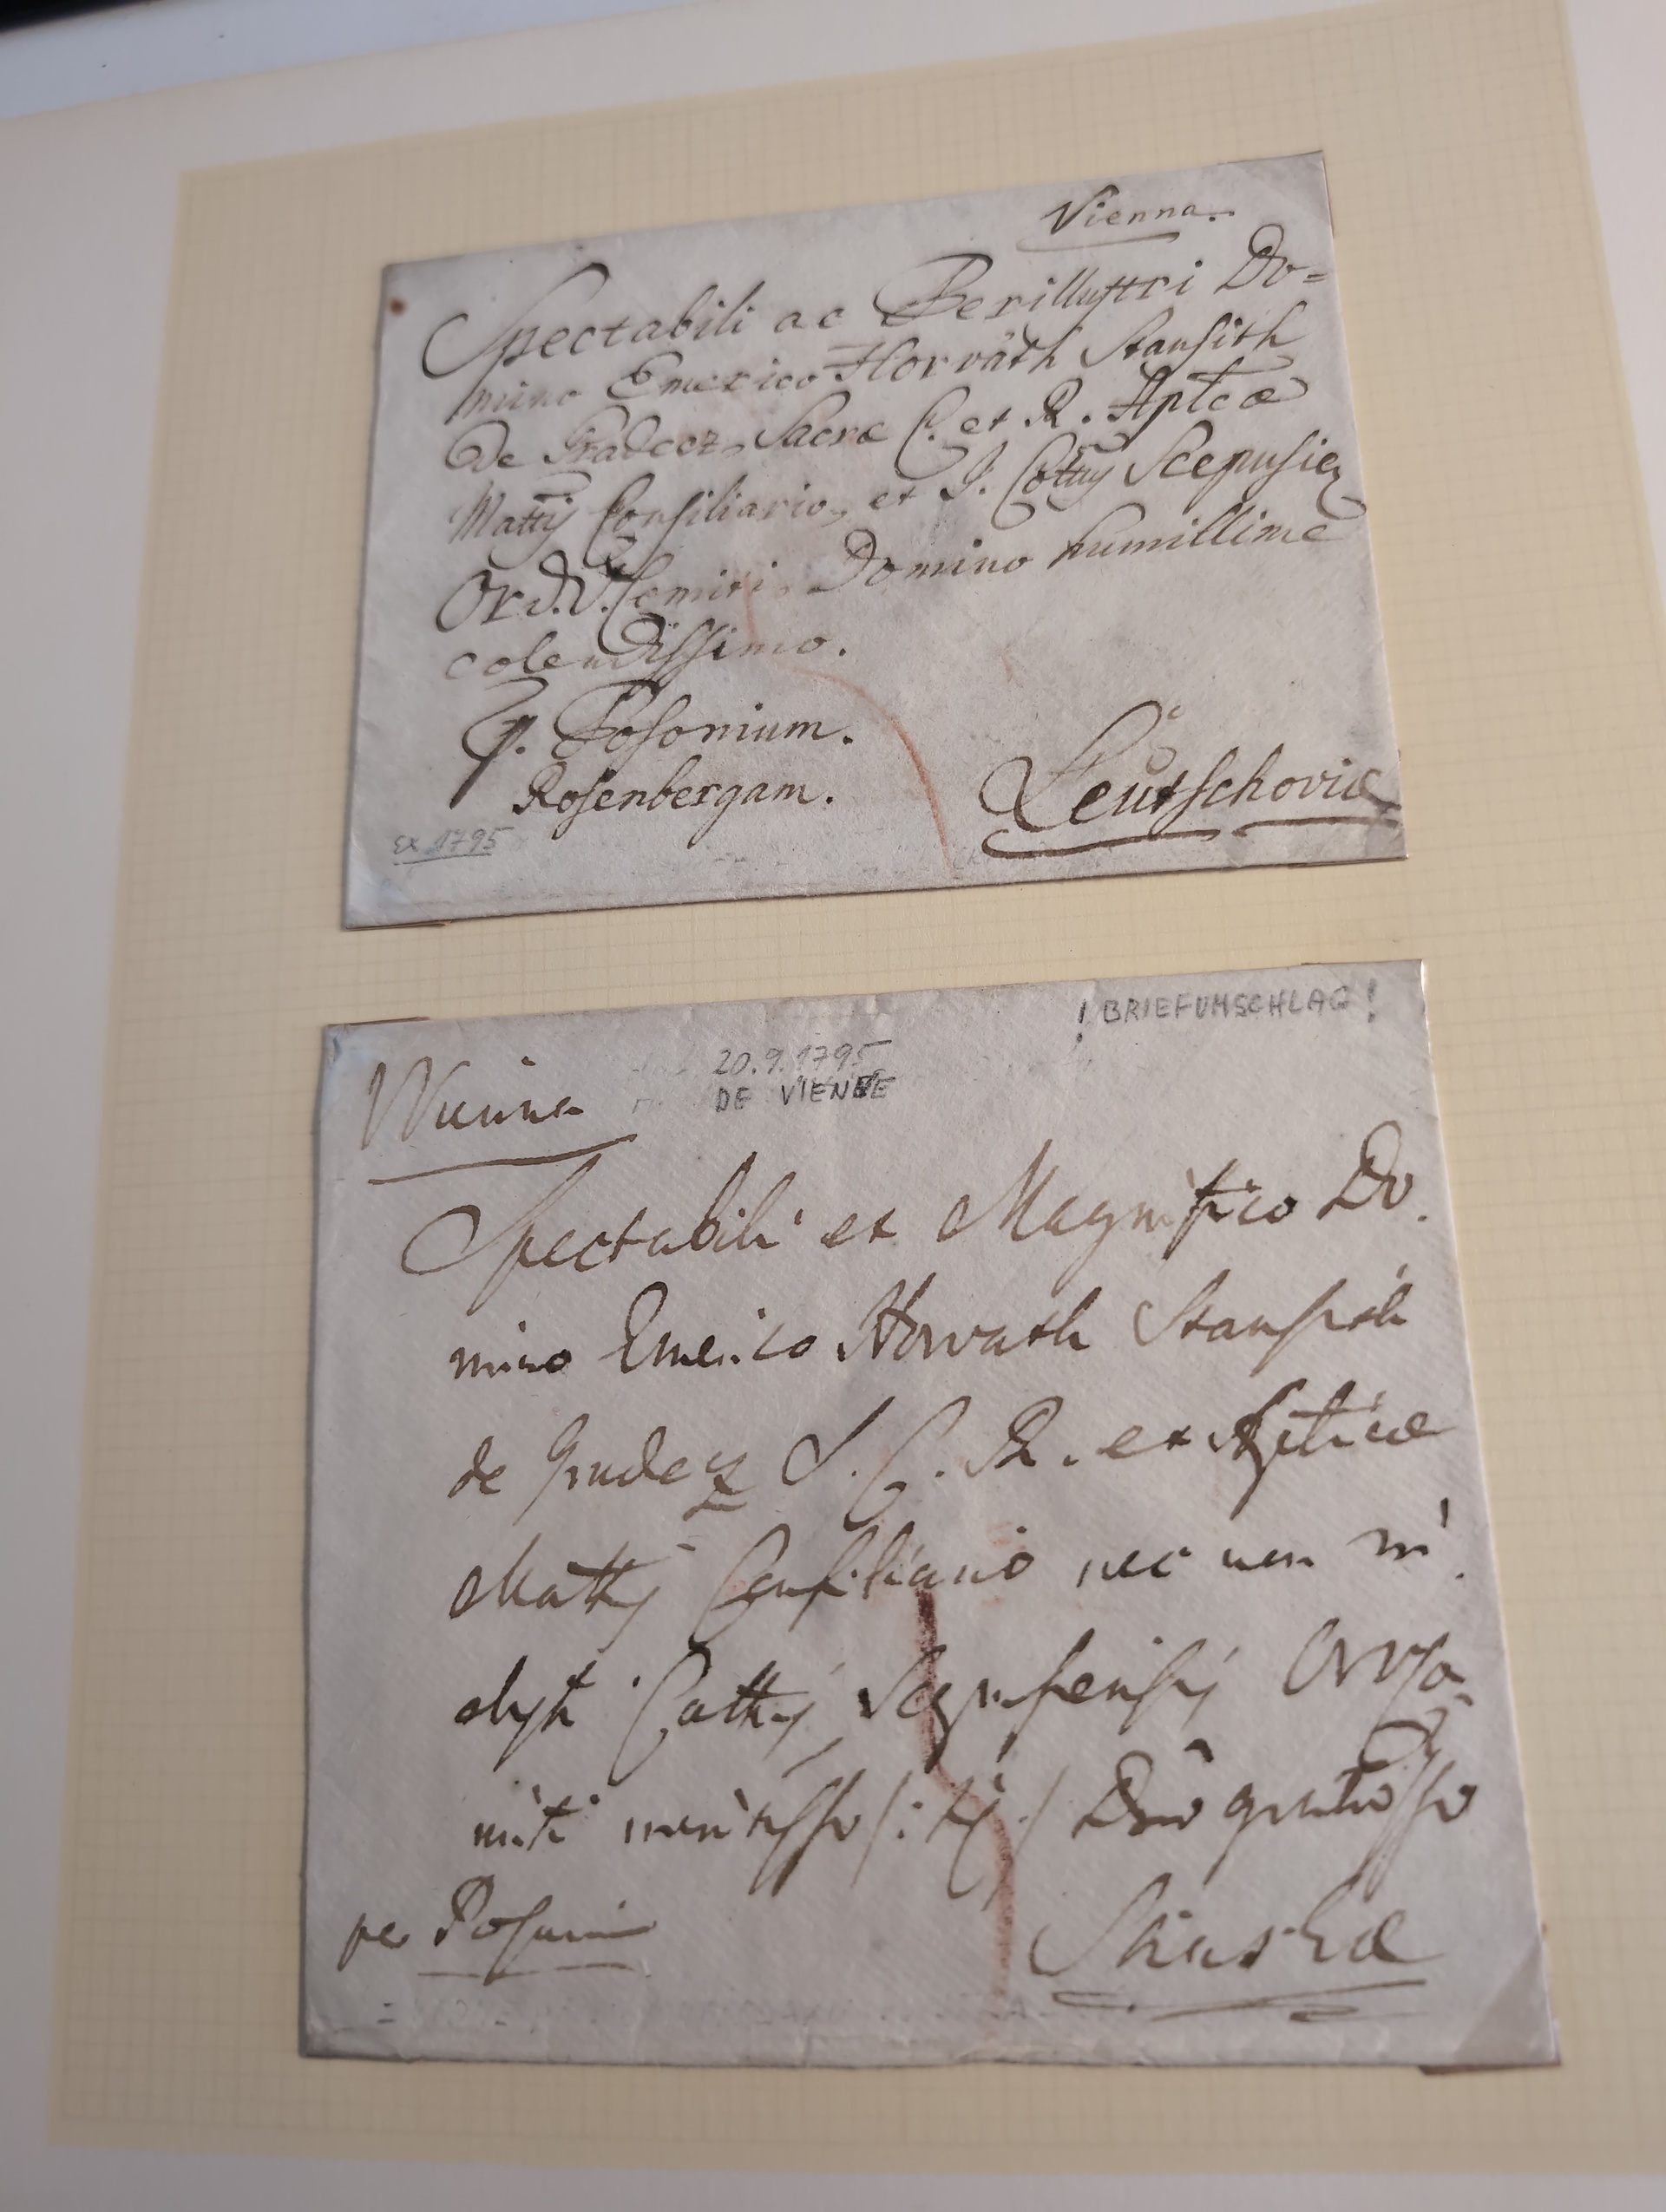 Vienna.
Spectabili ac Perillustri Do=
mino Emerico Horváth Stansith
de Gradecz, Sacræ C. et R. Aptcæ
Mattis Consiliario, et I. Cottus Scepusien
Ord. V. Comiti, Domino humillime
colendissimo.
p. Posonium.
Rosenbergam.
Leutschoviæ
ex 1795
! BRIEFUMSCHLAG !
20.9.1795
DE VIENNE
Wienna
Spectabili et Magnifico Do.
mino Emerico Horvath Stansith
de Gradecz S. C. R. et Apticæ
Mattis Consiliario nec non in
clyti Cottus Scepusiensis
Dno gratiosso
per Poson